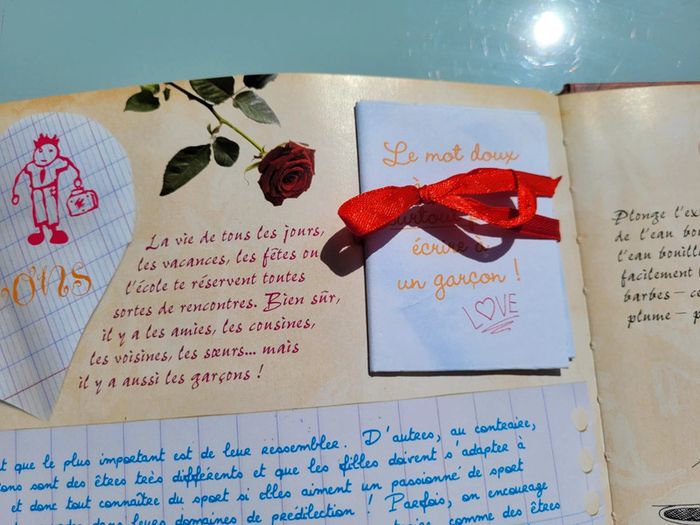 ons
La vie de tous les jours,
les vacances, les fêtes ou
l'école te réservent toutes
sortes de rencontres. Bien sûr,
il y a les amies, les cousines,
les voisines, les sœurs... mais
il y a aussi les garçons !
Le mot doux
à
surtout
écrire à
un garçon !
LOVE
t que le plus important est de leur ressembler. D'autres, au contraire,
ons sont des êtres très différents et que les filles doivent s'adapter à
et donc tout connaître du sport si elles aiment un passionné de sport
! Parfois, on encourage
dans leurs domaines de prédilection
comme des êtres
Plonge l'ex
de l'eau bou
l'eau bouill
facilement
barbes – ce
plume – p